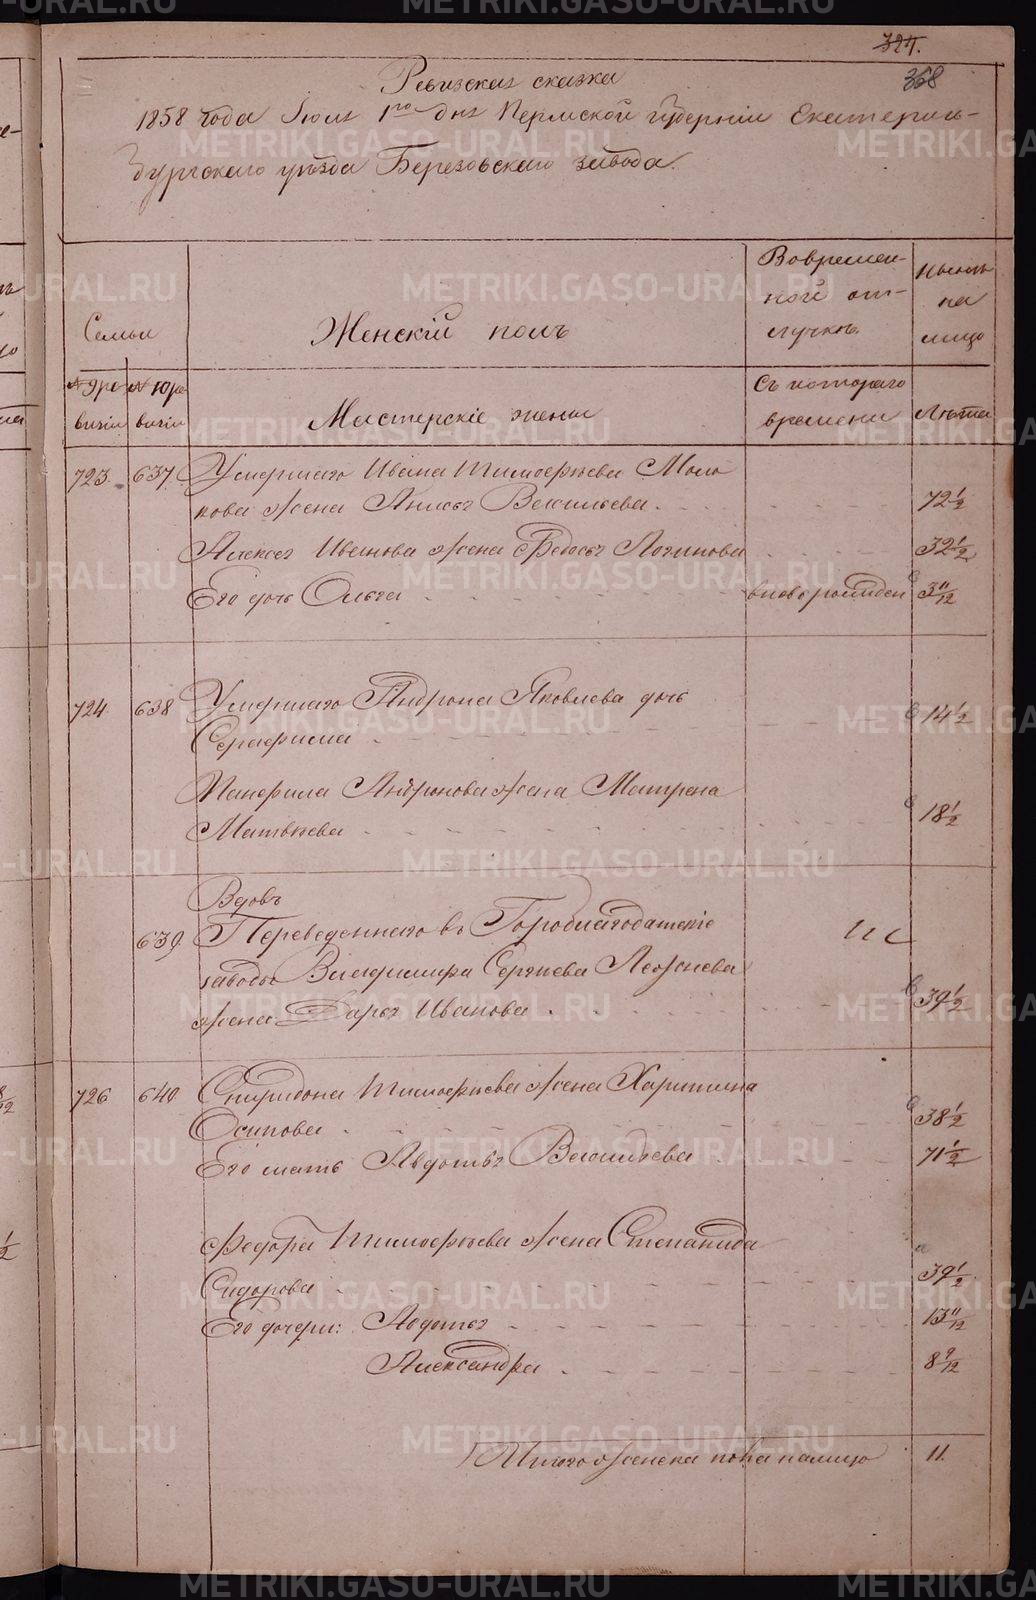 324.
368
Ревизская сказка
1858 года Июля 1го дня Пермской губерніи Екатерин-
бургскаго уѣзда Березовскаго завода.
Семьи
Женскій полъ
Во времен-
ной от-
лучкѣ.
Нынѣ
на
лицо
№ 9 ре-
визіи
№ 10 ре-
визіи
Мастерскіе жены
Съ котораго
времени
Лѣта
723. 637. Умершаго Ивана Тимофѣева Моло
кова жена Анисья Васильева. 72 1/2
Алексея Иванова жена Федосья Логинова 32 1/2
Его дочь Ольга вновь рожден 3 11/12
724. 638 Умершаго Андрона Яковлева дочь
Серафима 14 1/2
Панфила Андронова жена Матрена
Матвѣева 18 1/2
Вдовъ
639. Переведеннаго въ Гороблагодатскіе
заводы Владимира Сергѣева
жена Дарья Иванова 39 1/2
726 640 Спиридона Тимофѣева жена Харитина
Осипова 38 1/2
Его мать Авдотья Васильева 71 1/2
Федора Тимофѣева жена Степанида
Сидорова 39 1/2
Его дочери: Авдотья 13 11/12
Александра 8 9/12
Итого женска пола налицо 11.
METRIKI.GASO-URAL.RU